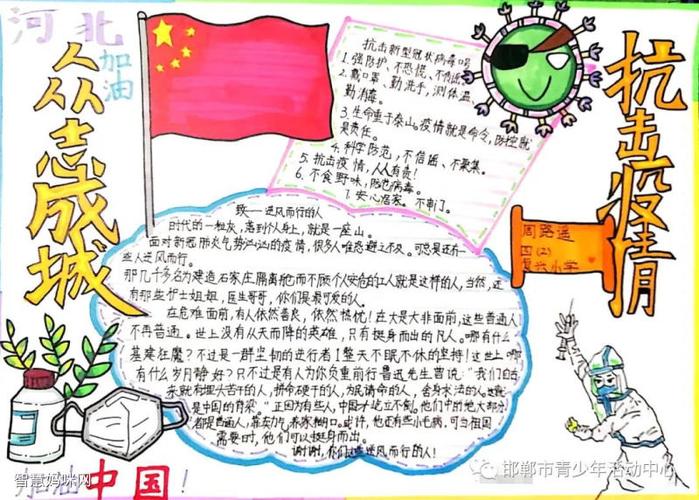 河北
加油
众志成城
抗击新型冠状病毒吗
1. 强防护、不恐慌、不传谣
2. 戴口罩、勤洗手，测体温、
勤消毒。
3. 生命重于泰山。疫情就是命令，防控就
是责任。
4. 科学防范，不信谣、不聚集。
5. 抗击疫情，人人有责！
6. 不食野味，防范病毒。
7. 安心居家。不串门。
抗击疫情
周路遥
四(2)
复兴小学
致——逆风而行的人
时代的一粒灰，落到个人身上，就是一座山。
面对新冠肺炎气势汹汹的疫情，很多人唯恐避之不及。可总是还有一
些人逆风而行。
那几千多名为建造石家庄隔离而不顾个人安危的工人就是这样的人，当然，还
有那些护士姐姐，医生哥哥，你们是最可爱的人。
在危难面前，有人依然善良，依然担忧！在大是大非面前，这些普通人
不再普通。世上没有从天而降的英雄，只有挺身而出的凡人。哪有什么
基建狂魔？不过是一群坚韧的逆行者！整天不眠不休的坚持！这世上哪
有什么岁月静好？只不过是有人为你负重前行鲁迅先生曾说："我们自古
来就有埋头苦干的人，拼命硬干的人，为民请命的人，舍身求法的人。
是中国的脊梁。"正因为有些人，中国才屹立不倒。他们中的绝大部分
都很普通人，养家糊口。或许，他还有些小毛病，可当祖国
需要时，他们可以挺身而出。
谢谢，你们这些逆风而行的人！
加油中国！
智慧妈咪网
邯郸市青少年活动中心